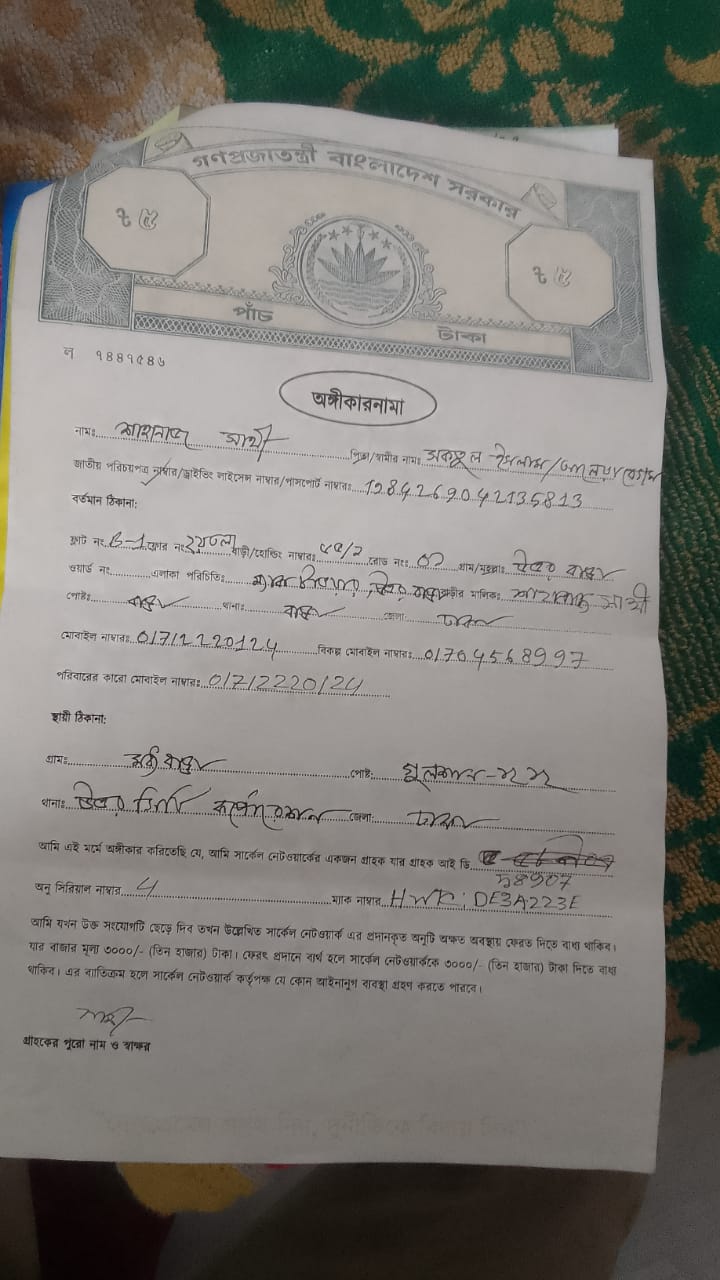 গণপ্রজাতন্ত্রী বাংলাদেশ সরকার
৳ ৫ ৳ ৫
পাঁচ টাকা
ল ৭৪৪৭৫৪৬
অঙ্গীকারনামা
নামঃ শাহনাজ সাথী পিতা/স্বামীর নামঃ ইসলাম/
জাতীয় পরিচয়পত্র নাম্বার/ড্রাইভিং লাইসেন্স নাম্বার/পাসপোর্ট নাম্বারঃ 1984269042135813
বর্তমান ঠিকানা:
ফ্লাট নং B-1 ফ্লোর নং ২য়তলা বাড়ী/হোল্ডিং নাম্বারঃ রোড নংঃ 02 গ্রাম/মহল্লাঃ উত্তর বাড্ডা
ওয়ার্ড নং এলাকা পরিচিতিঃ উত্তর বাড্ডা বাড়ীর মালিকঃ শাহনাজ সাথী
পোষ্টঃ বাড্ডা থানাঃ বাড্ডা জেলা ঢাকা
মোবাইল নাম্বারঃ 01712220124 বিকল্প মোবাইল নাম্বারঃ 01704568997
পরিবারের কারো মোবাইল নাম্বারঃ 01712220124
স্থায়ী ঠিকানা:
গ্রামঃ বাড্ডা পোষ্ট: গুলশান
থানাঃ উত্তর সিটি কর্পোরেশন জেলা: ঢাকা
আমি এই মর্মে অঙ্গীকার করিতেছি যে, আমি সার্কেল নেটওয়ার্কের একজন গ্রাহক যার গ্রাহক আই ডি
58907
অনু সিরিয়াল নাম্বার 4 ম্যাক নাম্বার HWTC: DE3A223E
আমি যখন উক্ত সংযোগটি ছেড়ে দিব তখন উল্লেখিত সার্কেল নেটওয়ার্ক এর প্রদানকৃত অনুটি অক্ষত অবস্থায় ফেরত দিতে বাধ্য থাকিব।
যার বাজার মূল্য ৩০০০/- (তিন হাজার) টাকা। ফেরৎ প্রদানে ব্যর্থ হলে সার্কেল নেটওয়ার্ককে ৩০০০/- (তিন হাজার) টাকা দিতে বাধ্য
থাকিব। এর ব্যতিক্রম হলে সার্কেল নেটওয়ার্ক কর্তৃপক্ষ যে কোন আইনানুগ ব্যবস্থা গ্রহণ করতে পারবে।
গ্রাহকের পুরো নাম ও স্বাক্ষর